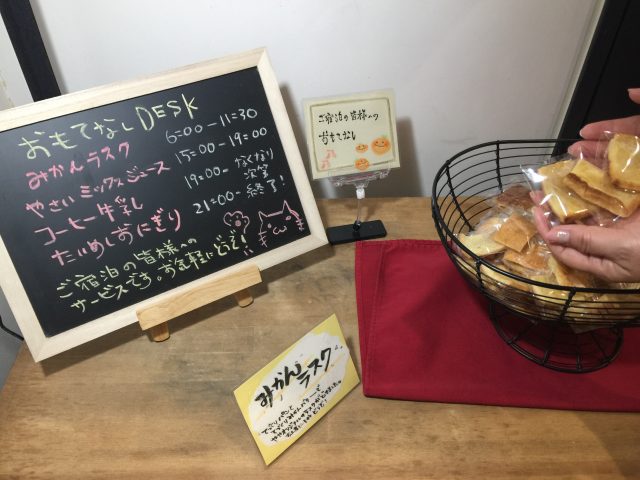 おもてなし DESK
みかんラスク 6:00-11:30
やさいミックスジュース 15:00-19:00
コーヒー牛乳 19:00- なくなり次第
たいめしおにぎり 21:00- 終了!
ご宿泊の皆様への
サービスです。お気軽にどうぞ!
ご宿泊の皆様への
おもてなし
みかん
ラスク